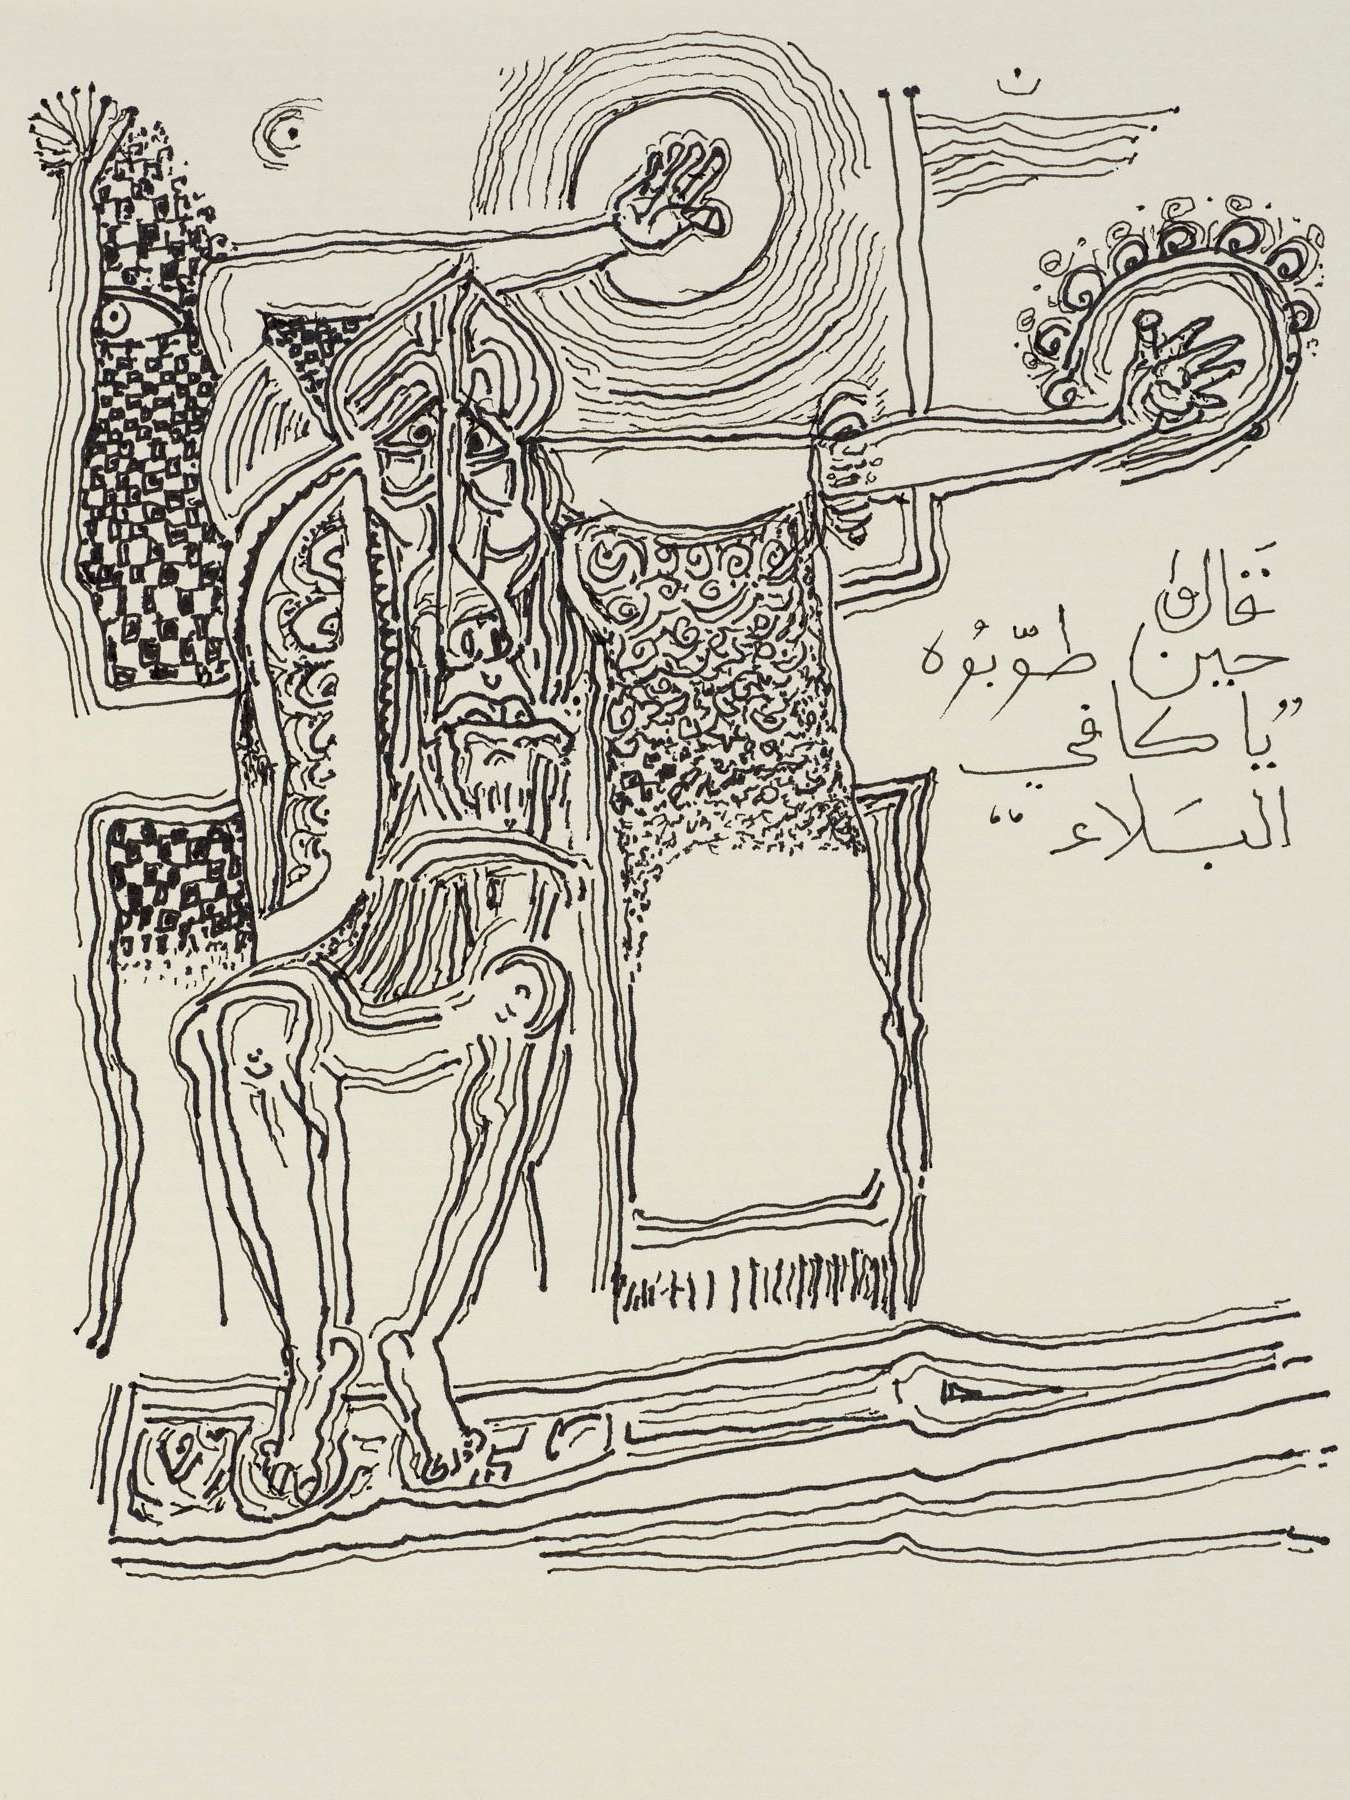 قَالوا
حين طوّبُوه
"يا كافي
البَلاء"